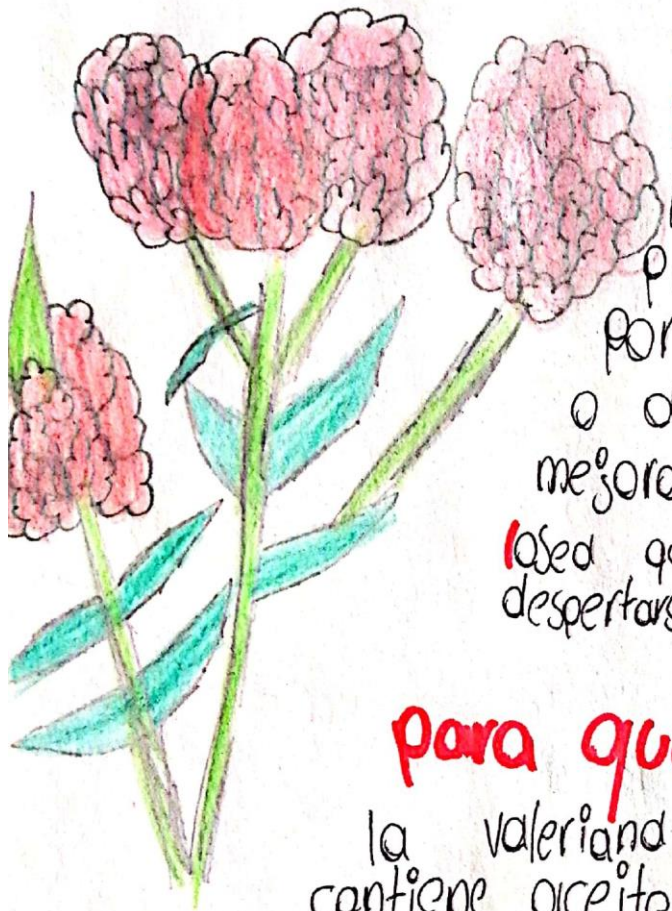 p
por
o a
mejora
(osea q
despertars
para qu
la valeriana
contiene aceita